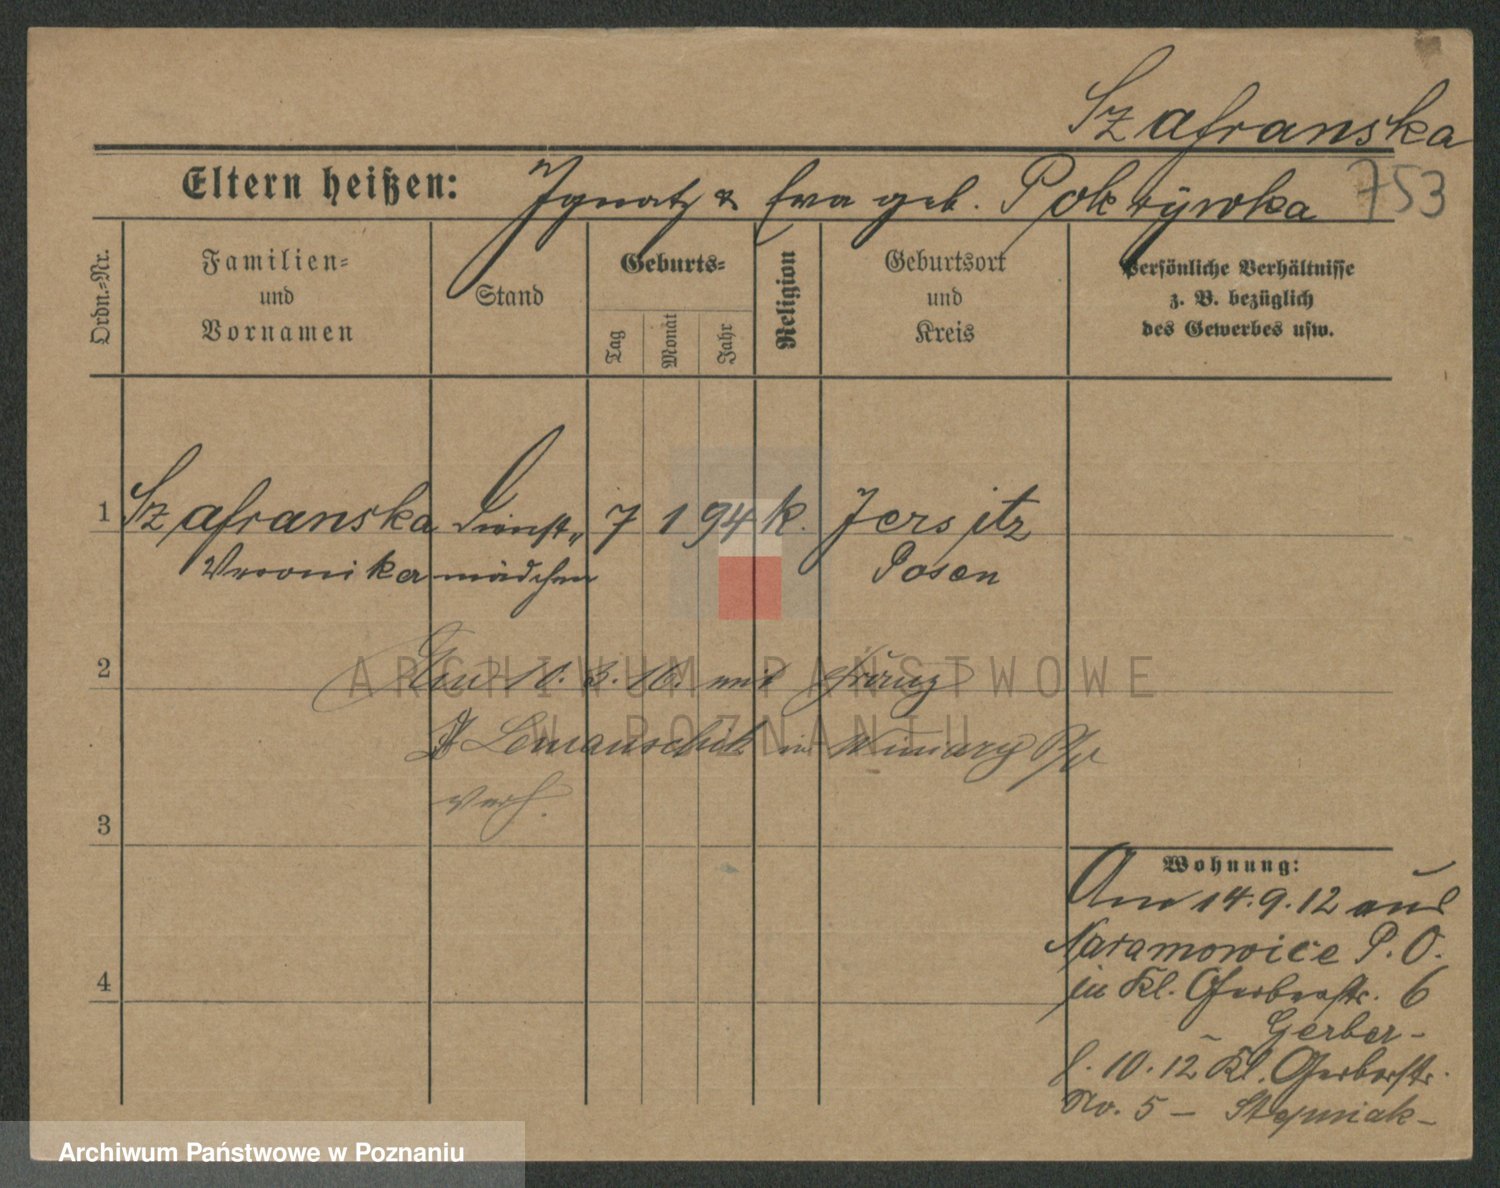 Szafranska
Eltern heißen: Ignatz & Eva geb. Pokrÿwka 753
Ordn.=Nr.
Familien=
und
Vornamen
Stand
Geburts=
Tag
Monat
Jahr
Religion
Geburtsort
und
Kreis
Persönliche Verhältnisse
z. B. bezüglich
des Gewerbes usw.
1 Szafranska Dienst„ 7 1 94 k. Jersitz
Veronika mädchen Posen
2 Am 10. 3. 16. mit Franz
Lemanschik in Winiary
verh.
3
Wohnung:
Am 14.9.12 aus
Naramowice P.O.
4 in Kl. Gerberstr. 6
Gerber-
8.10.12 Kl. Gerberstr.
No. 5 – Stejniak –
ARCHIWUM PAŃSTWOWE
W POZNANIU
Archiwum Państwowe w Poznaniu